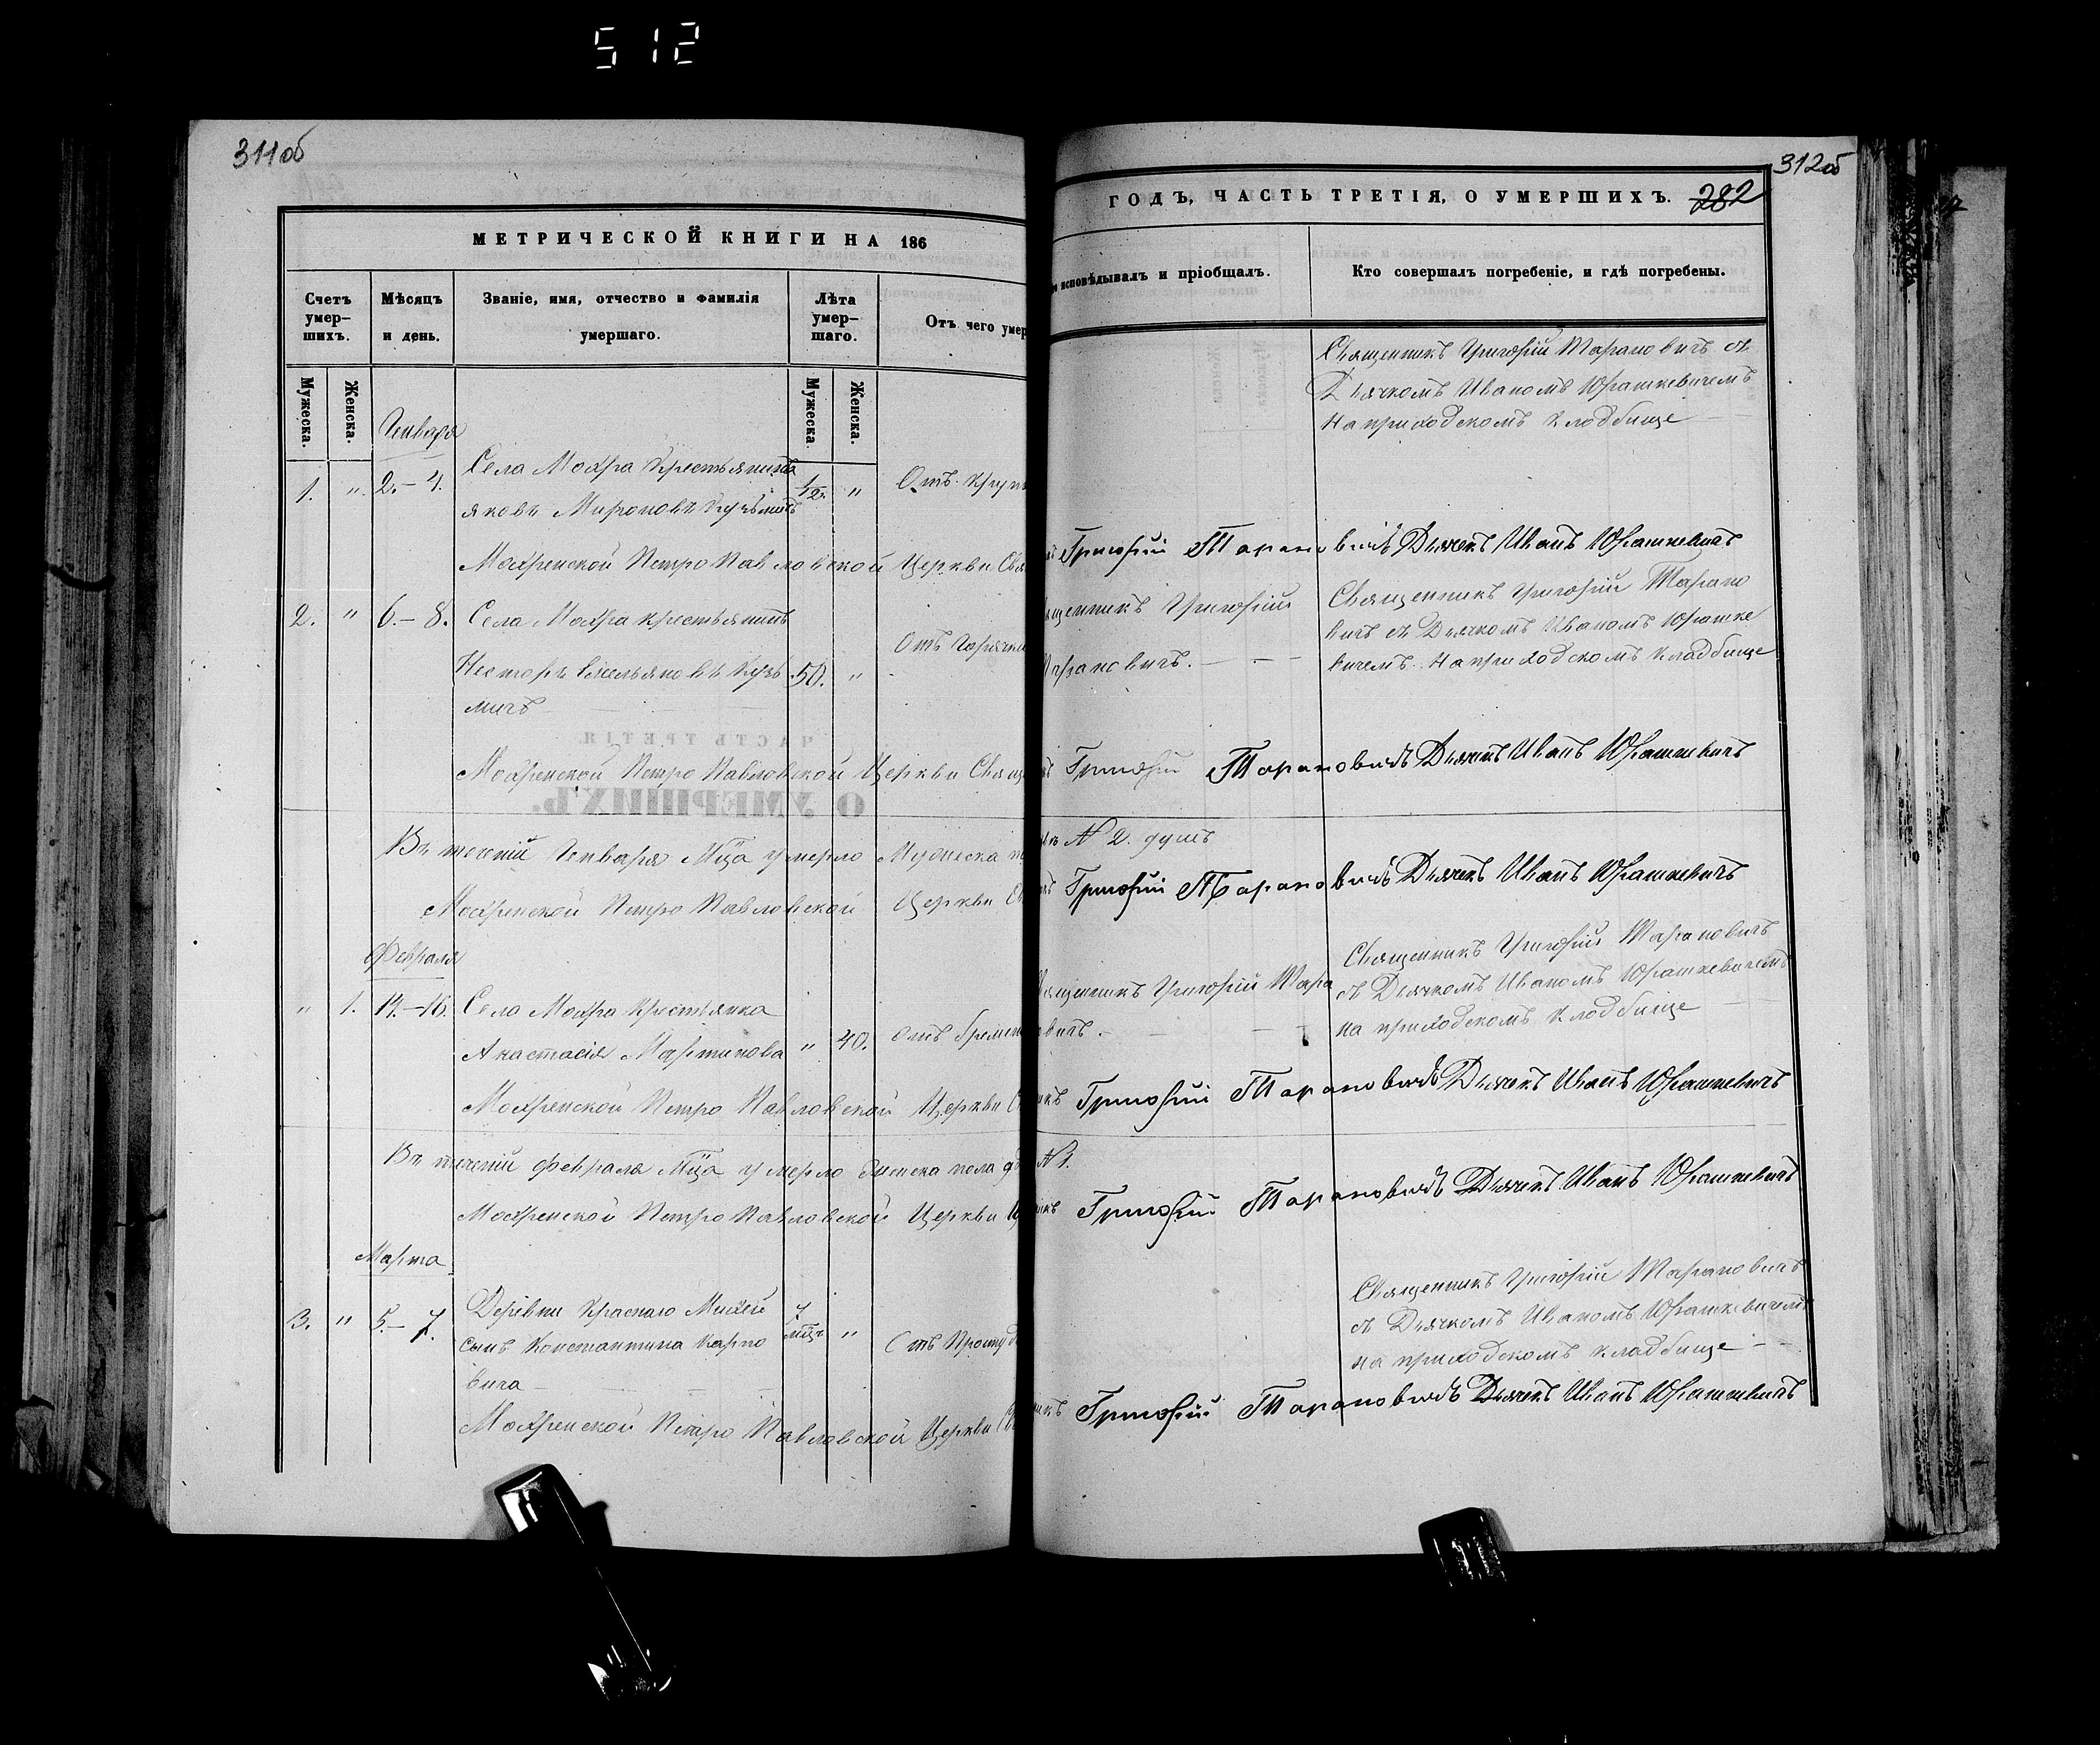 512
311об
МЕТРИЧЕСКОЙ КНИГИ НА 186
Счетъ умер-шихъ.
Мѣсяцъ и день.
Званіе, имя, отчество и фамилія умершаго.
Лѣта умер-шаго.
Отъ чего умер
Мужеска.
Женска.
Мужеска.
Женска.
Генваря
1. " 2.-4. Села Мохра крестьянинъ 1/2. "
Яковъ Мироновъ
Мохренской Петро Павловской Церкви Свя
2. " 6.-8. Села Мохра крестьянинъ
Отъ горячки
Несторъ Емельяновъ Кузь 50. "
мичъ
Мохренской Петро Павловской Церкви Свящ
Въ теченіи Генваря Мца умерло Мужеска по
Мохренской Петро Павловской Церкви Св
Февраля
" 1. 14.-16. Села Мохра Крестьянка
Анастасія Мартинова " 40. Отъ бремен
Мохренской Петро Павловской Церкви С
Въ теченіи Февраля Мца умерло женска пола
Мохренской Петро Павловской Церкви
Марта
3. " 5.-7. Деревни Краснаго Михей 7 мцъ "
сынъ Константина Карпо Отъ Простуд
вича
Мохренской Петро Павловской Церкви
312об
ГОДЪ, ЧАСТЬ ТРЕТІЯ, О УМЕРШИХЪ. 282
исповѣдывалъ и пріобщалъ.
Кто совершалъ погребеніе, и гдѣ погребены.
Священникъ Григорій Тарановичъ съ
Дьячкомъ Иваномъ Юрашкевичемъ
на приходскомъ кладбище
Григорій Тарановичъ Дьячекъ Иванъ Юрашкевичъ
ященникъ Григорій
Тарановичъ.
Священникъ Григорій Тарано
вичъ съ Дьячкомъ Иваномъ Юрашке
вичемъ на приходскомъ кладбище
Григорій Тарановичъ Дьячекъ Иванъ Юрашкевичъ
№ 2. душъ
Григорій Тарановичъ Дьячекъ Иванъ Юрашкевичъ
ященникъ Григорій Тара
вичъ.
Священникъ Григорій Тарановичъ
съ Дьячкомъ Иваномъ Юрашкевичемъ
на приходскомъ кладбище
Григорій Тарановичъ Дьячекъ Иванъ Юрашкевичъ
№ 1.
Григорій Тарановичъ Дьячекъ Иванъ Юрашкевичъ
Священникъ Григорій Тарановичъ
съ Дьячкомъ Иваномъ Юрашкевичемъ
на приходскомъ кладбище
Григорій Тарановичъ Дьячекъ Иванъ Юрашкевичъ